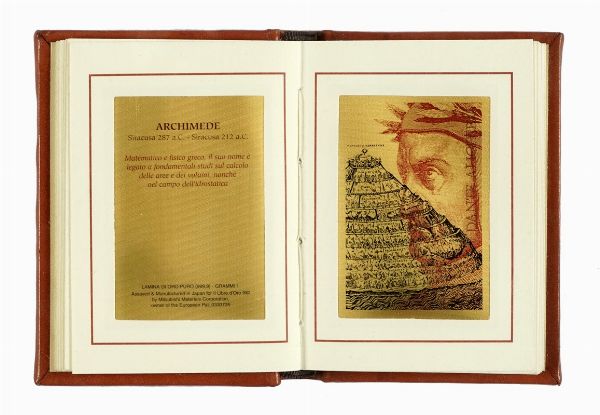 ARCHIMEDE
Siracusa 287 a.C. - Siracusa 212 a.C.
Matematico e fisico greco, il suo nome è
legato a fondamentali studi sul calcolo
delle aree e dei volumi, nonché
nel campo dell'idrostatica
LAMINA DI ORO PURO (999,9) - GRAMMI 1
Assayed & Manufactured in Japan for Il Libro d'Oro
by Mitsubishi Materials Corporation,
owner of the European Pat.
DANTE